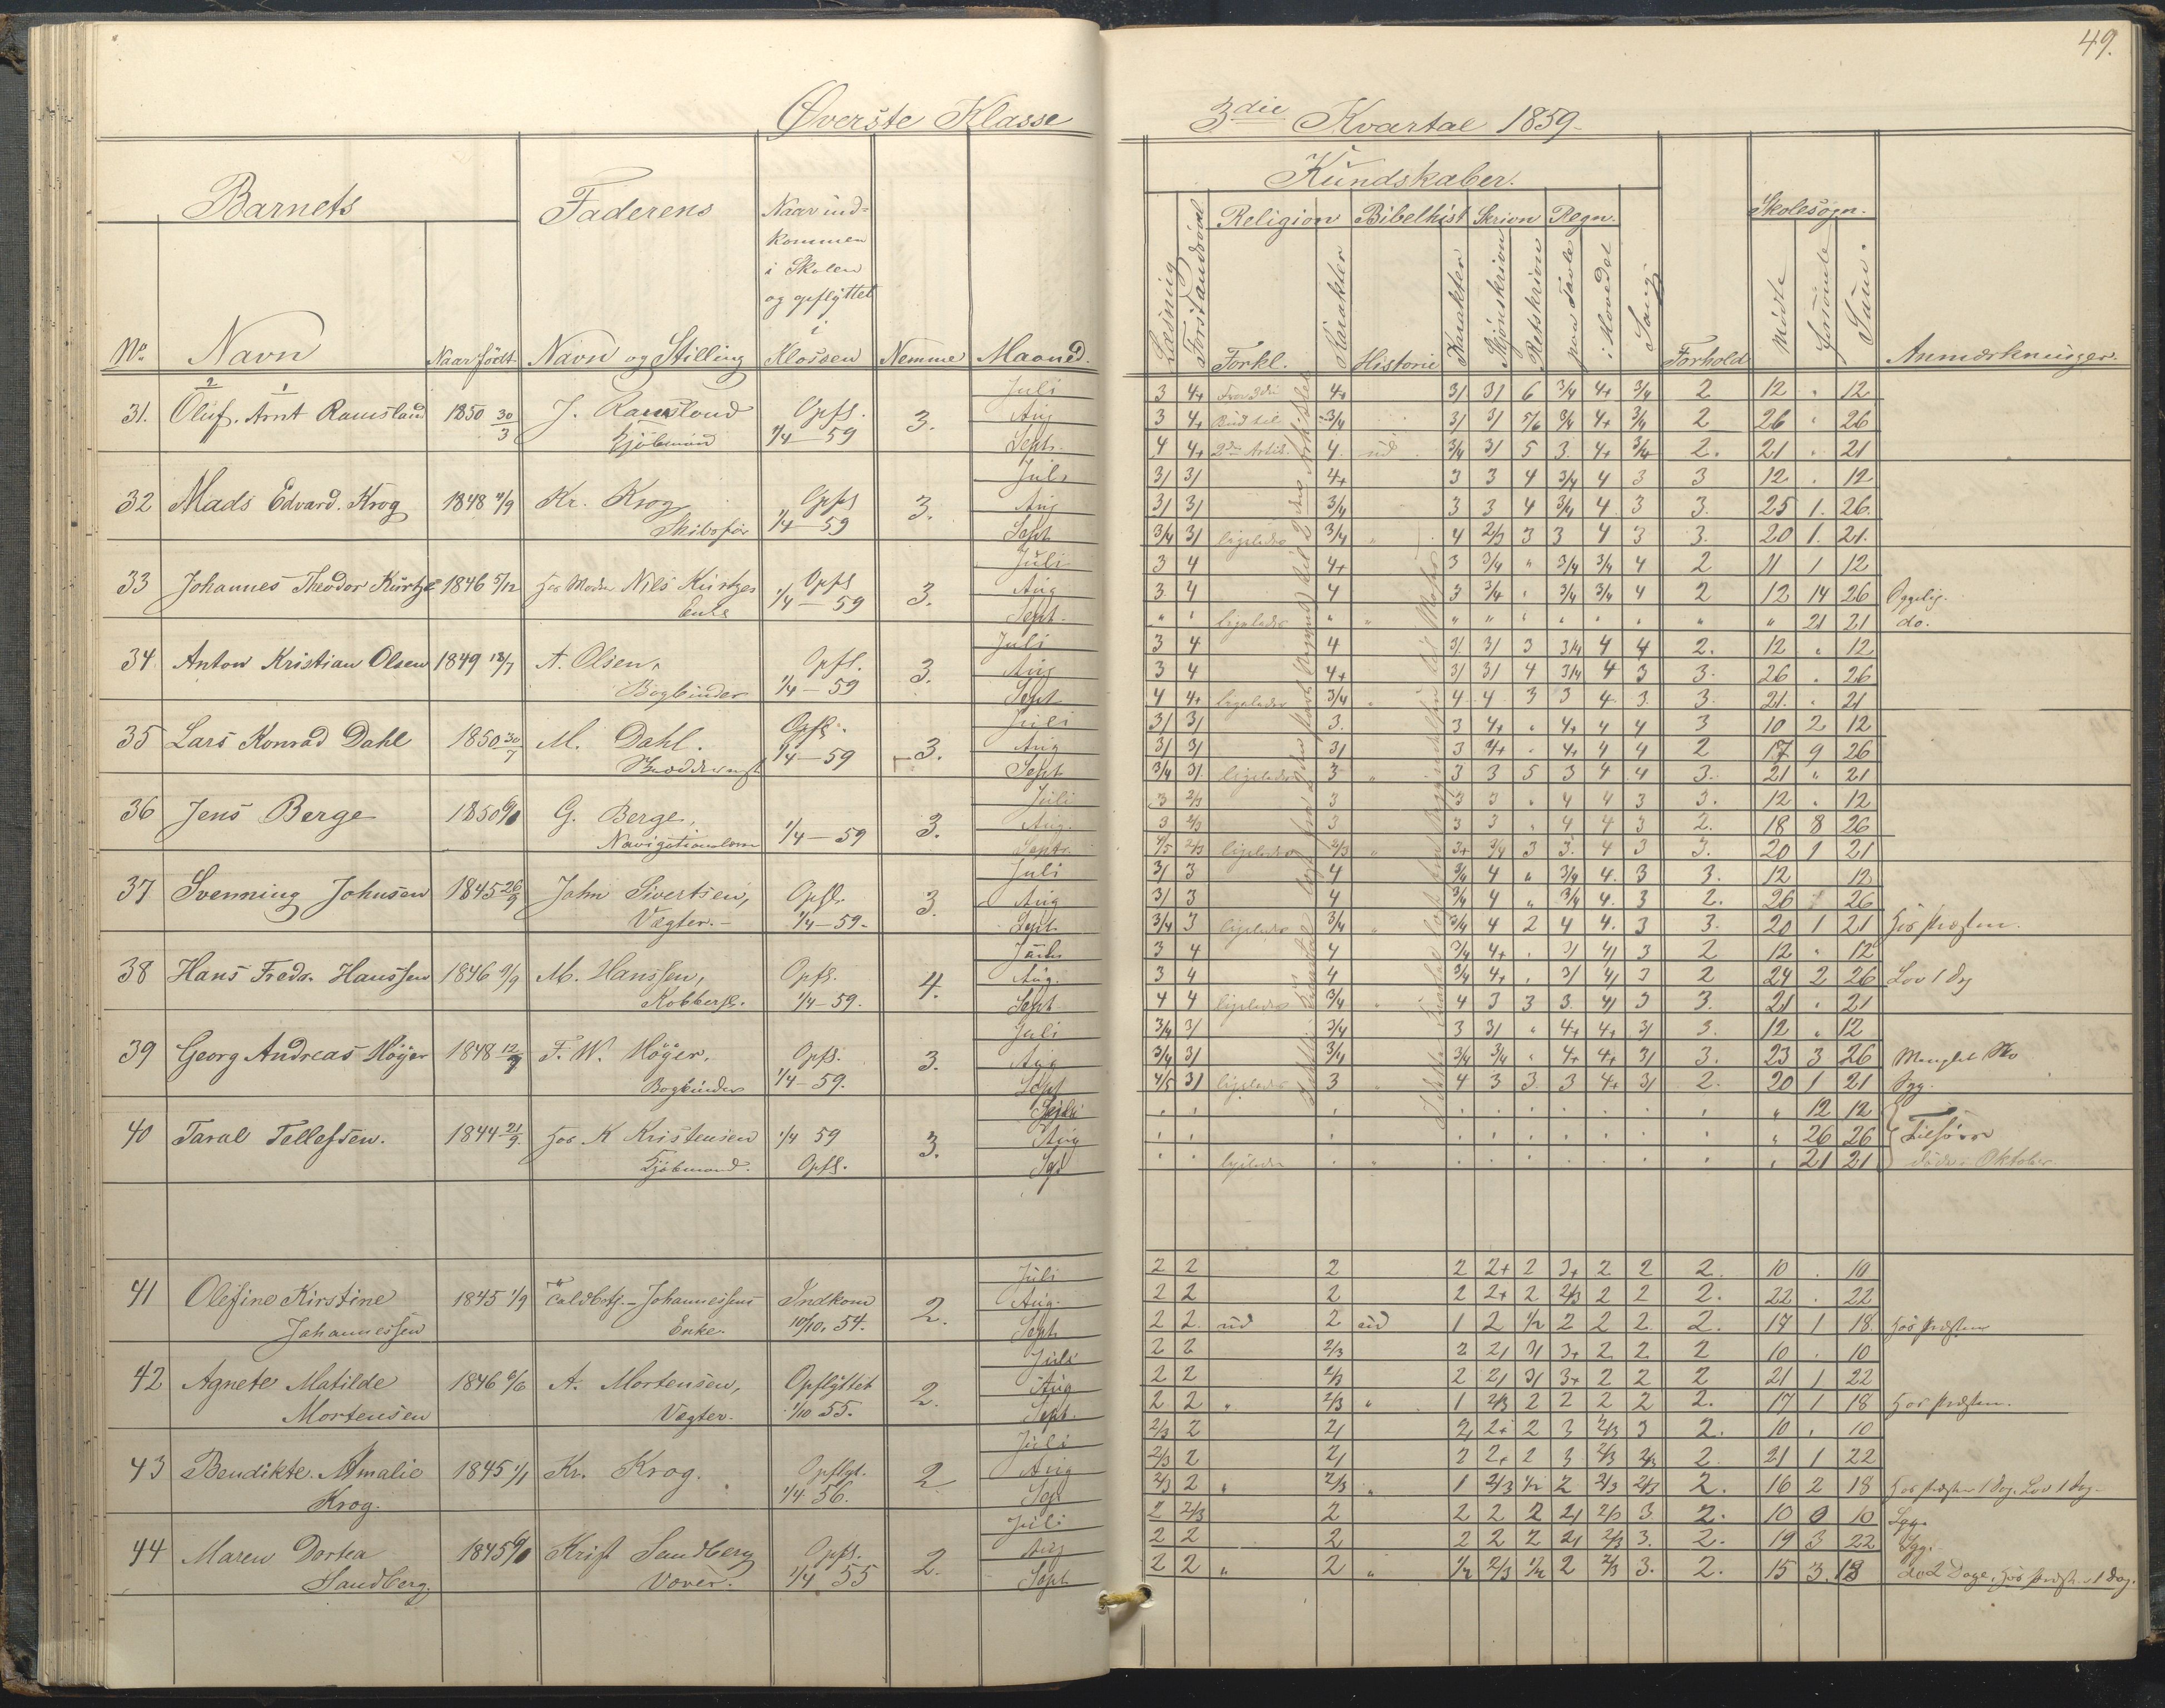 49.
Øverste Klasse
3die Kvartal 1859
Barnets
Faderens
Naar ind-
kommen
i Skolen
og opflyttet
i
Klassen
No
Navn
Naar født
Navn og Stilling
Nemme
Maaned.
Kundskaber.
Læsning
Religion
Bibelhist
Skrivn
Regn.
Forkl.
Karakter
Historie
Karakter
Skjönskrivn
Retskrivn
paa Tavle
i Hovedet
Sang
Forhold
Skolesøgn.
Mødte
Forsömte
Sum.
Anmærkninger.
31. Oluf. Arnt Ramsland 1850 30/3 J. Ramsland Opfl. 3. Juli 3 4+ 4+ 3/ 3/ 6 3/4 4+ 3/4 2 12 " 12
Kjöbmand 1/4 – 59 Aug 3 4+ Bud til 3/4 3/ 3/ 5/6 3/4 4+ 3/4 2 26 " 26
Sept. 4 4+ 2den Artik. 4 ud 3/4 3/ 5 3. 4+ 3/4 2. 21 " 21
32 Mads Edvard. Krog 1848 4/9 Kr. Krog Opfl 3. Juli 3/ 3/ 4+ 3 3 4 3/4 4 3 3 12 . 12
Skibsför 1/4 – 59 Aug 3/ 3/ 3/4 3 3 4 3/4 4 3 3. 25 1. 26.
Sept 3/4 3/ ligeledes 3/4 " 4 2/3 3 3 4 3 3. 20 1. 21.
33 Johannes Theodor Kürtze 1846 5/12 hos Moder Nils Kürtzes Opfl 3. Juli 3 4 4+ 3 3/4 " 3/4 3/4 4 2 11 1 12
Enke 1/4 – 59 Aug 3 4 4 3 3/4 " 3/4 3/4 4 2 12 14 26 Sygelig.
Sept. " " ligeledes " " " " " " " " " " 21 21 do.
34 Anton Kristian Olsen 1849 18/7 A. Olsen, Opfl. 3. Juli 3 4 4 3/ 3/ 3 3/4 4 4 2. 12 " 12
Bogbinder 1/4 – 59 Aug 3 4 4+ 3/ 3/ 4 3/4 4 3 3. 26 . 26
Sept 4 4+ ligeledes 3/4 " 4 4 3 3 4 3. 3. 21. . 21
35 Lars Konrad Dahl 1850 30/7 M. Dahl. Opfl. 3. Juli 3/ 3/ 3. 3 4+ " 4+ 4 4 3 10 2 12
1/4 – 59 Aug 3/ 3/ 3/ 3 4+ " 4+ 4 4 2 17 9 26
Sept 3/4 3/ ligeledes 3 " 3 3 5 3 4 4 3. 21 " 21
36 Jens Berge 1850 G. Berge, 3. Juli 3 2/3 3 3 3 " 4 4 3 3. 12 . 12
1/4 – 59 Aug. 3 2/3 3 3 3 " 4 4 3 2. 18 8 26
Septr. 4/5 2/3 ligeledes 2/3 " 3+ 3/4 3 3. 4 3 3. 20 1 21
37 Svenning Johnsen 1845 26/9 John Sivertsen, Opfl. 3. Juli 3/ 3 4 3/4 4 " 3/4 4. 3 3. 12 12
Vægter. – 1/4 – 59. Aug 3/ 3 4 3/4 4 " 3/4 4. 3 2. 26 26
Sept. 3/4 3 ligeledes 3/4 " 3/4 4 2 4 4. 3 3. 20 1 21 Hos Præsten.
38 Hans Fredr. Hanssen 1846 9/9 M. Hanssen, Opfl. 4. Juli 3 4 4 3/4 4+ . 3/ 4/ 3 2 12 " 12
Kobbersl. 1/4 – 59. Aug. 3 4 4 3/4 4+ . 3/ 4/ 3 2 24 2 26 Lov 1 Dag
Sept 4 4 ligeledes 3/4 " 4 3 3 3 4/ 3 3. 21 . 21
39 Georg Andreas Höyer 1848 F. W. Höyer. Opfl. 3. Juli 3/4 3/ 3/4 3 3/ " 4+ 4+ 3/ 3. 12 " 12
Bogbinder 1/4 – 59. Aug 3/4 3/ 3/4 3/4 3/4 " 4+ 4+ 3/ 3. 23 3 26 Manglet Sko
Sept 4/5 3/ ligeledes 3 4 3 3 3 4+ 3/ 2. 20 1 21 Syg.
40 Taral Tellefsen. 1844 21/9. hos K Kristensen 1/4 59 3. Juli " 12 12
Kjöbmand. Opfl. Aug " 26 26 Tilsöes
Sept ligeledes " 21 21 döde i Oktober
41 Olefine Kirstine 1845 1/9 Johannessens Indkom 2. Juli 2 2 2 2 2+ 2 3+ 2 2 2. 10 . 10
Johannessen Enke. 10/10. 54. Aug. 2 2 2 2 2+ 2 2/3 2 2 2. 22 . 22
Sept 2 2. ud 2 ud 1 2 1/2 2 2 2. 2. 17 1 18. Hos Præsten
42 Agnete Matilde 1846 6/6 A. Mortensen, Opflyttet 2. Juli 2 2 2/3 2 2/ 3/ 3+ 2 2 2 10 . 10
Mortensen Vægter. 1/10 55. Aug 2 2 2/3 2 2/ 3/ 3+ 2 2 2 21 1 22
Sept. 2 2 " 2/3 " 1 2/3 2 2 2 2 2. 17 1 18 Hos Præsten.
43 Bendikte. Amalie 1845 1/1 Kr. Krog. Opflyt. 2 Juli 2/3 2 2/ 2/ 2+ 2 3 2/3 3 2. 10 . 10
Krog. 1/4 56. Aug 2/3 2 2/ 2 2+ 2 3 2/3 2/3 2 21 1 22
Sept 2/3 2 " 2/3 " 1 2/3 1/2 2 2/3 2/3 2. 16 2 18 Hos Præsten 1 Dag. Lov 1 Dag –
44 Maren Dortea 1845 Krist Sandberg Opfl. 2. Juli 2 2/3 2 2 2 2 2/ 2/3 3 2. 10 0 10 Syg.
Sandberg. Væver. 1/4 55 Aug 2 2 2 2 2 2 2/ 2/3 3. 2. 19 3 22 Syg.
Sept 2 2 " 2 " 1/2 2/3 1/2 2 2/3 3. 2. 15 3. 18 do 2 Dage, hos Præsten 1 Dag.